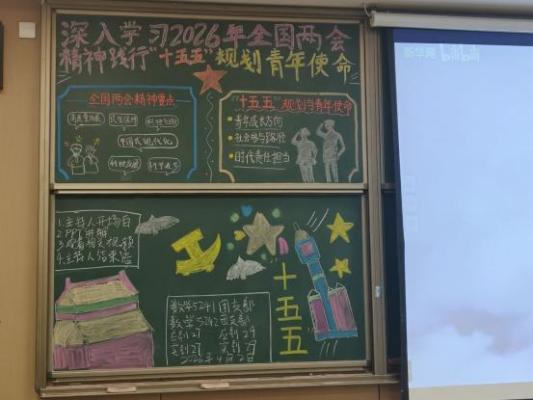 深入学习2026年全国两会
精神践行"十五五"规划青年使命
全国两会精神要点
高质量发展
民生保障
中国式现代化
"十五五"规划与青年使命
青年成长方向
社会参与路径
时代责任担当
1.主持人开场白
2.PPT讲解
3.观看相关视频
4.主持人结束语
十五五
数学5241团支部
数学5242团支部
应到27 应到29
实到27 实到29
2026年4月2日
新华网 bilibili